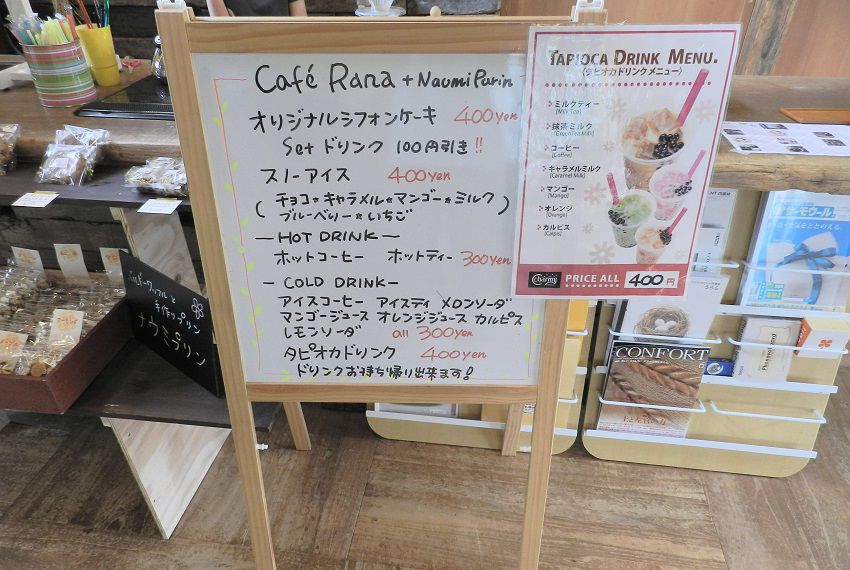 Café Rana + Naumi Purin
オリジナルシフォンケーキ 400yen
Set ドリンク 100円引き!!
スノーアイス 400yen
(チョコ★キャラメル★マンゴー★ミルク
ブルーベリー★いちご)
—HOT DRINK—
ホットコーヒー ホットティー 300yen
— COLD DRINK—
アイスコーヒー アイスティ メロンソーダ
マンゴージュース オレンジジュース カルピス
レモンソーダ all 300yen
タピオカドリンク 400yen
ドリンクお持ち帰り出来ます!
TAPIOCA DRINK MENU.
〈タピオカドリンクメニュー〉
ミルクティー
[Milk Tea]
抹茶ミルク
[Green Tea Milk]
コーヒー
[Coffee]
キャラメルミルク
[Caramel Milk]
マンゴー
[Mango]
オレンジ
[Orange]
カルピス
[Calpis]
Charmy PRICE ALL 400円
手作りプリン
ナウミプリン
CONFORT